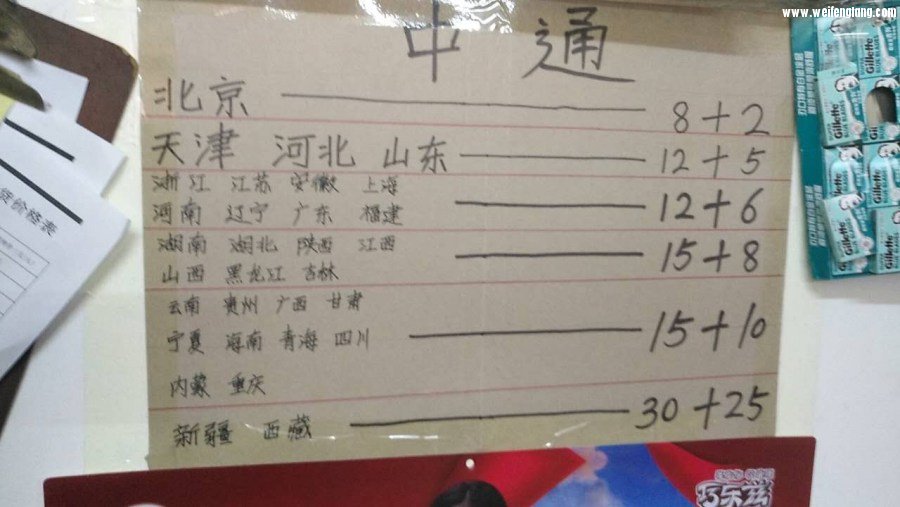 www.weifengtang.com
中 通
北京 8+2
天津 河北 山东 12+5
浙江 江苏 安徽 上海
河南 辽宁 广东 福建 12+6
湖南 湖北 陕西 江西 15+8
山西 黑龙江 吉林
云南 贵州 广西 甘肃
宁夏 海南 青海 四川 15+10
内蒙 重庆
新疆 西藏 30+25
货价格表
Gillette
Gillette
Gillette
Gillette
巧乐兹